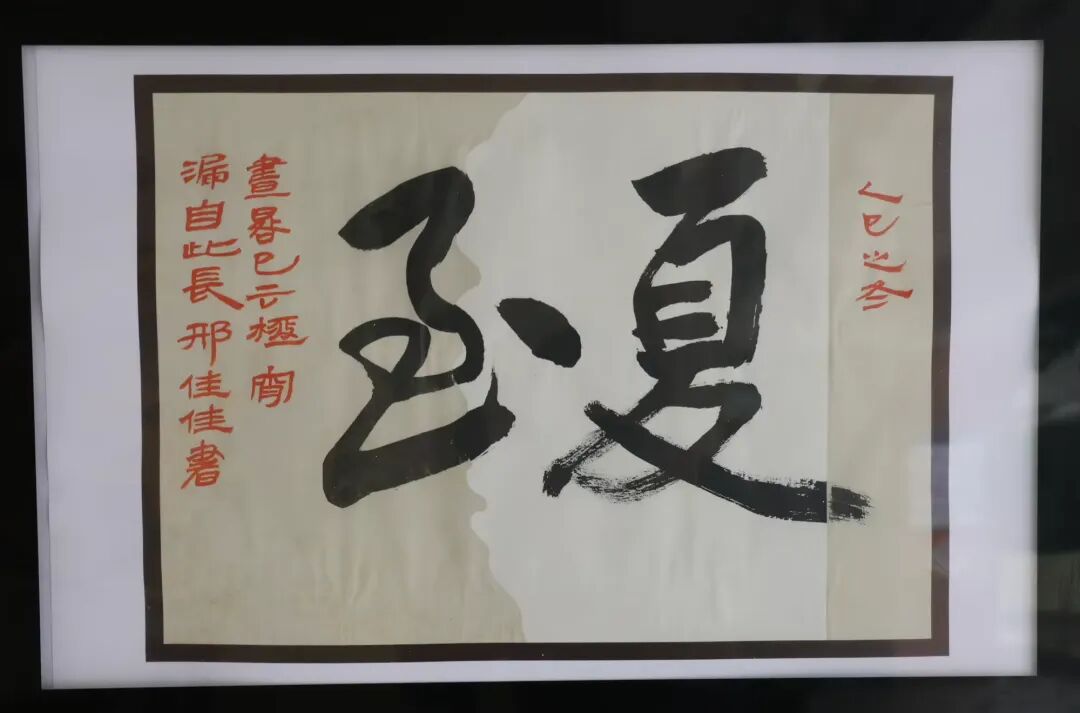 乙巳之冬
夏至
晝晷已云極宵
漏自此長 邢佳佳書